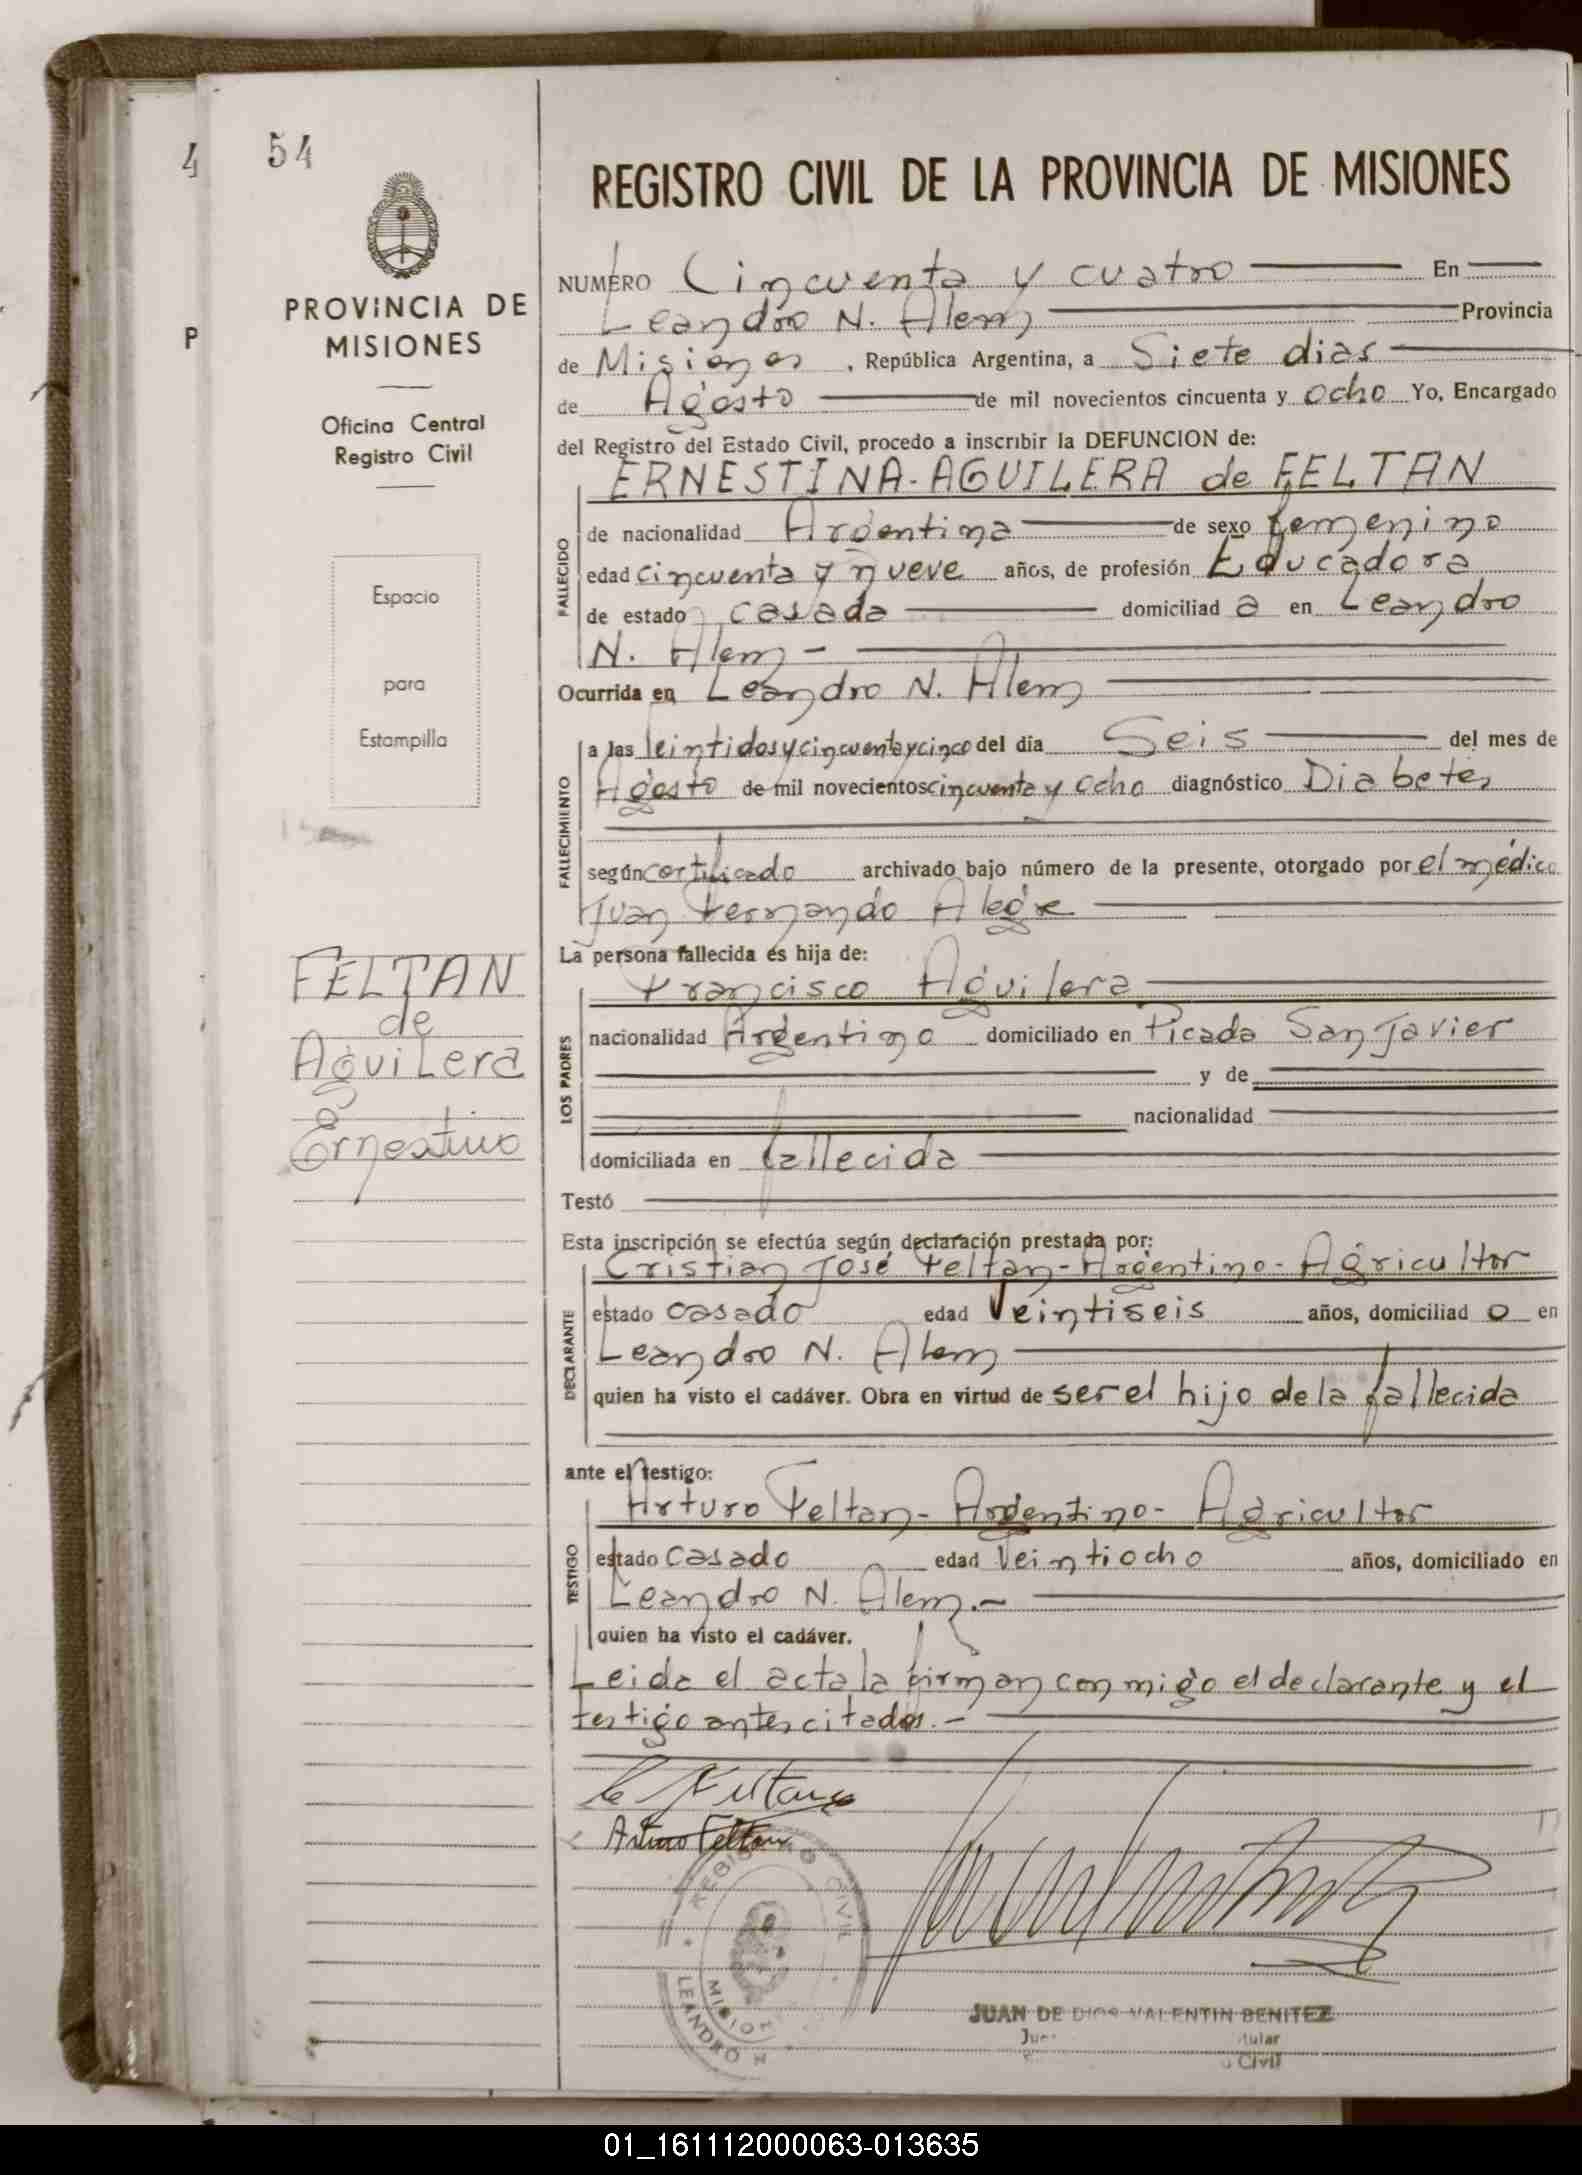 54
4
P
PROVINCIA DE
MISIONES
Oficina Central
Registro Civil
Espacio
para
Estampilla
FELTAN
de
Aguilera
Ernestina
REGISTRO CIVIL DE LA PROVINCIA DE MISIONES
NUMERO Cincuenta y cuatro En
Leandro N. Alem Provincia
de Misiones, República Argentina, a Siete dias
de Agosto de mil novecientos cincuenta y ocho Yo, Encargado
del Registro del Estado Civil, procedo a inscribir la DEFUNCION de:
ERNESTINA-AGUILERA de FELTAN
FALLECIDO
de nacionalidad Argentina de sexo femenino
edad cincuenta y nueve años, de profesión Educadora
de estado casada domiciliad a en Leandro
N. Alem -
Ocurrida en Leandro N. Alem
FALLECIMIENTO
a las veintidos y cincuenta y cinco del día Seis del mes de
Agosto de mil novecientos cincuenta y ocho diagnóstico Diabetes
según certificado archivado bajo número de la presente, otorgado por el médico
Juan Fernando Alegre
La persona fallecida es hija de:
LOS PADRES
Francisco Aguilera
nacionalidad Argentino domiciliado en Picada San Javier
y de
nacionalidad
domiciliada en fallecida
Testó
Esta inscripción se efectúa según declaración prestada por:
DECLARANTE
Cristian José Feltan - Argentino - Agricultor
estado casado edad Veintiseis años, domiciliad o en
Leandro N. Alem
quien ha visto el cadáver. Obra en virtud de ser el hijo de la fallecida
ante el testigo:
TESTIGO
Arturo Feltan - Argentino - Agricultor
estado casado edad Veintiocho años, domiciliado en
Leandro N. Alem.-
quien ha visto el cadáver.
Leida el acta la firman conmigo el declarante y el
testigo antes citados.-
Feltan
Arturo Feltan
REGISTRO CIVIL
MISION
LEANDRO N
JUAN DE DIOS VALENTIN BENITEZ
tular
Civil
01_161112000063-013635